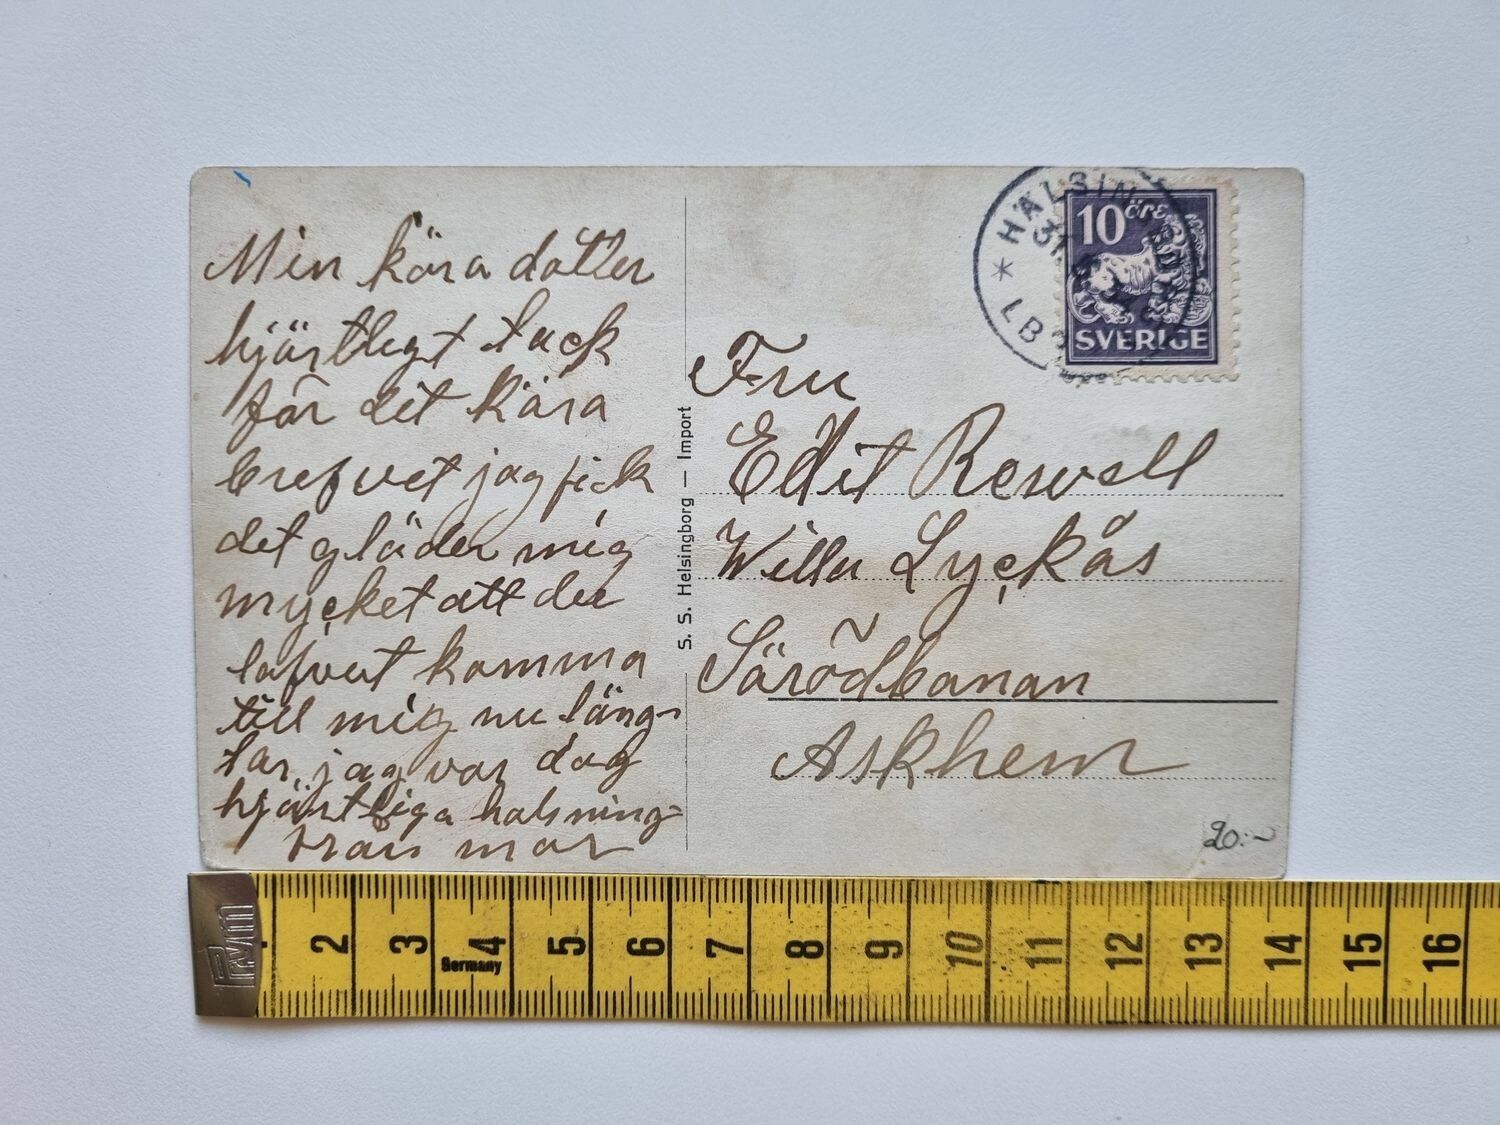 Min kära dotter
hjärtligt tack
för det kära
brefvet jag fick
det gläder mig
mycket att du
lofvat komma
till mig nu läng-
tar jag var dag
hjärtliga halsning-
från mor
S. S. Helsingborg — Import
HÄLSIN
31
LB
10 öre
SVERIGE
Fru
Edit Rewell
Willa Lyckås
Särödbanan
Askhem
20:-
Prym
2 3 4 5 6 7 8 9 10 11 12 13 14 15 16
Germany